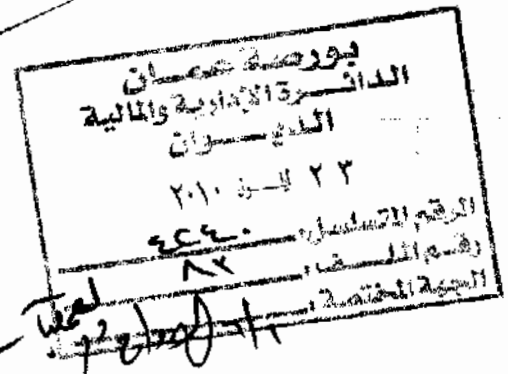 بورصة عمان
الدائرة الإدارية والمالية
الديوان
٢٣ ٢٠١٠
الرقم المتسلسل: ٤٢٤٠
رقم الملف: ٨٢
الجهة المختصة: